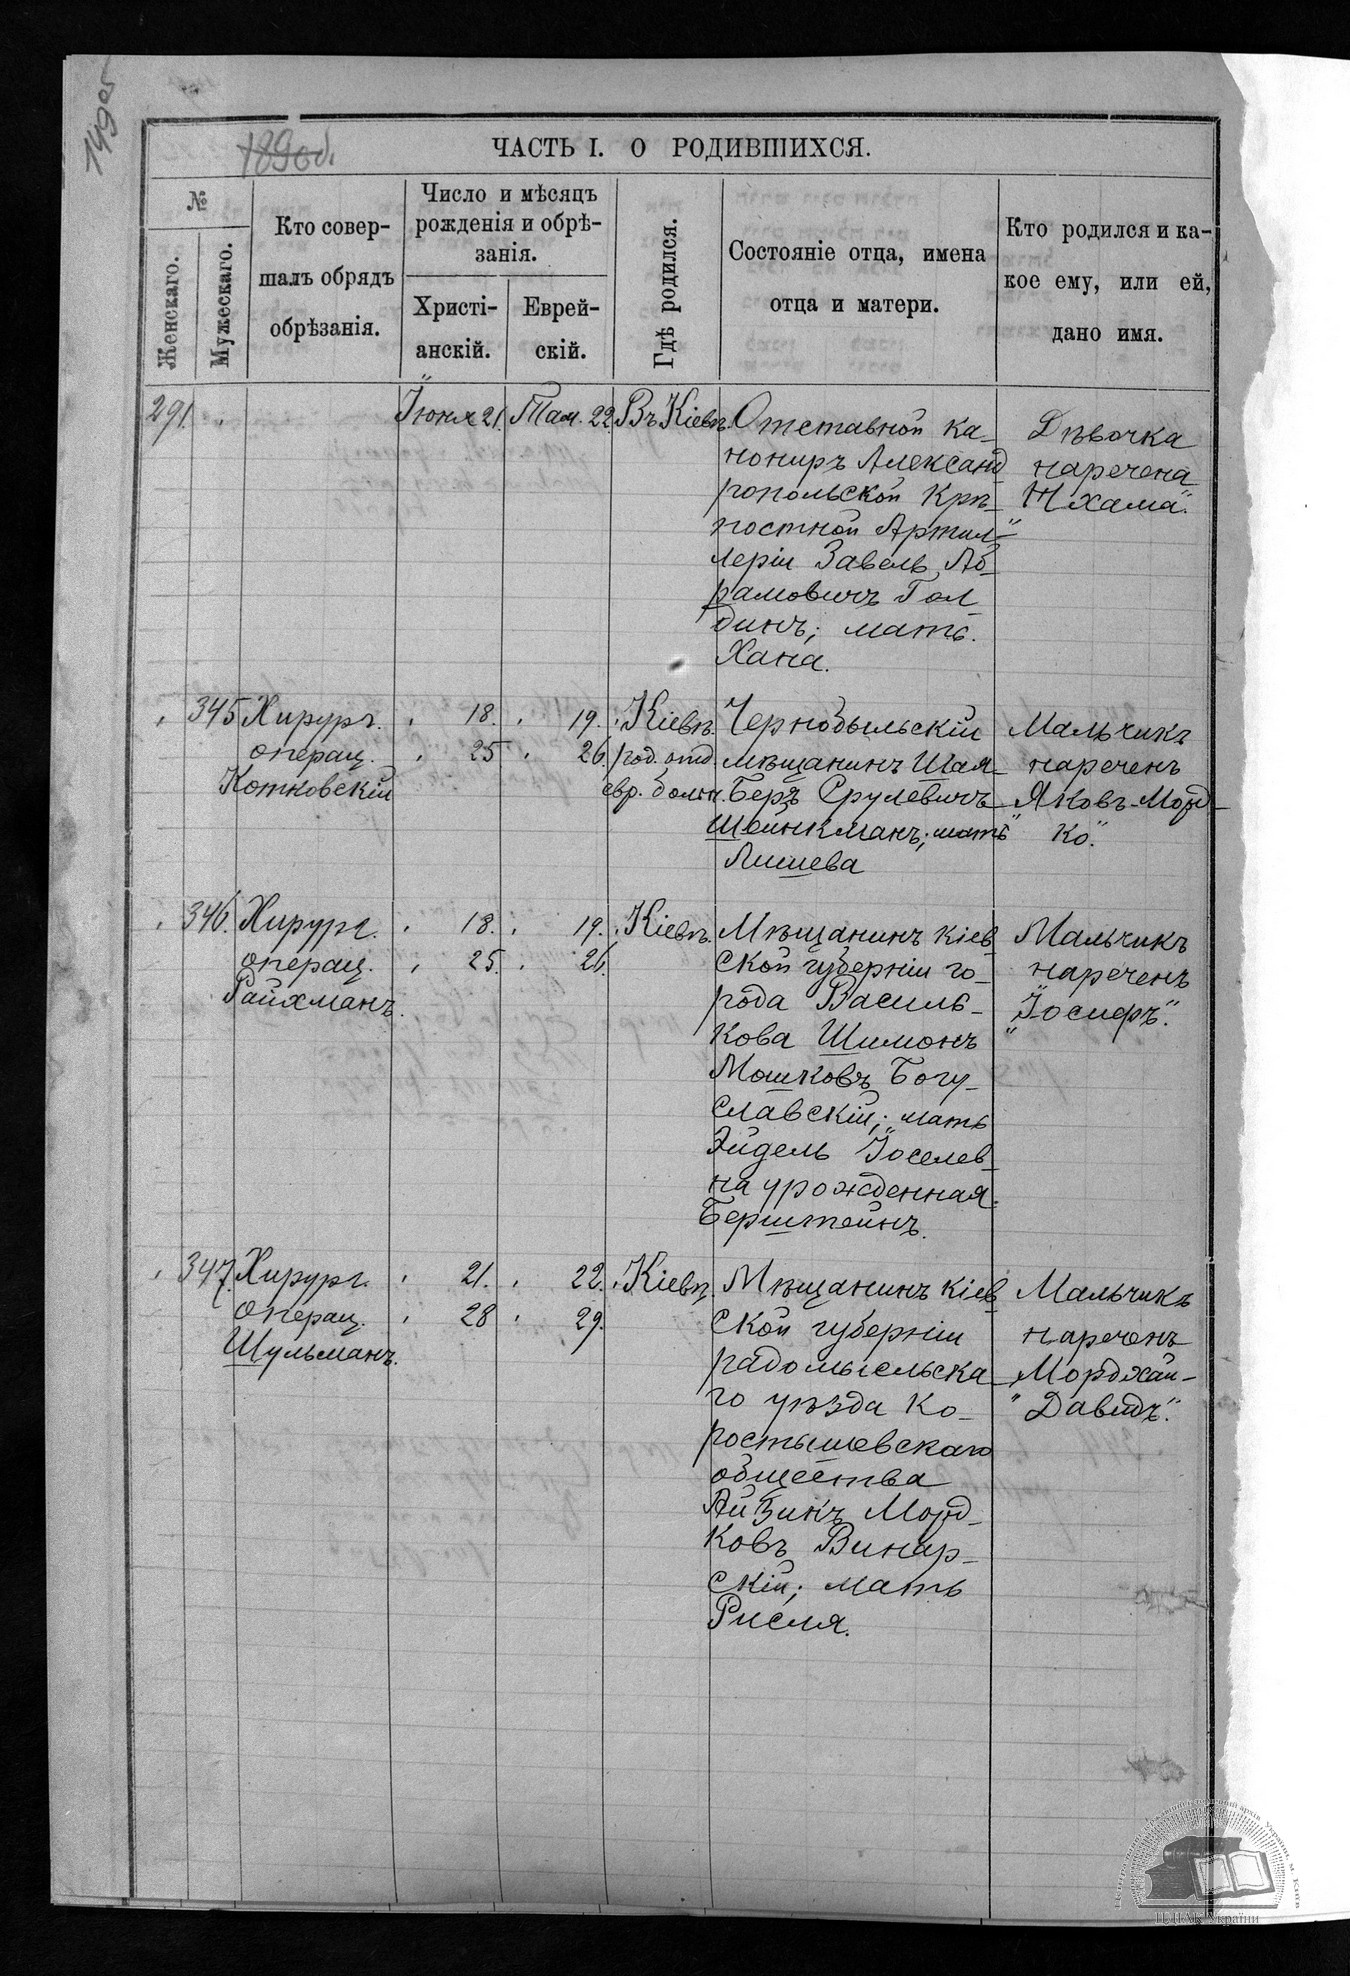 149об
1890г.
ЧАСТЬ I. О РОДИВШИХСЯ.
№
Женскаго.
Мужескаго.
Кто совер-
шалъ обрядъ
обрѣзанія.
Число и мѣсяцъ
рожденія и обрѣ-
занія.
Христі-
анскій.
Еврей-
скій.
Гдѣ родился.
Состояніе отца, имена
отца и матери.
Кто родился и ка-
кое ему, или ей,
дано имя.
291.
Іюня 21. Там. 22. Въ Кіевѣ.
Отставной ка-
нониръ Александ
ропольской Крѣ-
постной Артил-
леріи Завель Аб-
рамовичъ Гол
динъ; мать
Хана.
Дѣвочка
наречена
"Нхама".
345
Хирург.
операц.
Котковскій
18. 19.
25 26.
Кіевѣ.
род. отд.
евр. больн.
Чернобыльскій
мѣщанинъ Шая-
Беръ Срулевичъ
Шейнкманъ; мать
Лишева
Мальчикъ
нареченъ
"Яковъ-Морд-
ко".
346.
Хирург.
операц.
Райхманъ.
18. 19.
25. 26.
Кіевѣ.
Мѣщанинъ Кіев
ской губерніи го-
рода Василь-
кова Шимонъ
Мошковъ Богу-
славскій; мать
Эйдель Іоселев-
на урожденная
Берштейнъ.
Мальчикъ
нареченъ
"Іосифъ".
347.
Хирург.
операц.
Шульманъ.
21. 22.
28 29.
Кіевѣ.
Мѣщанинъ Кіев
ской губерніи
радомысльска-
го уѣзда Ко-
ростышевскаго
общества
Айзикъ Морд-
ковъ Винар-
скій; мать
Рисля.
Мальчикъ
нареченъ
"Мордхай-
Давидъ".
ЦДІАК України